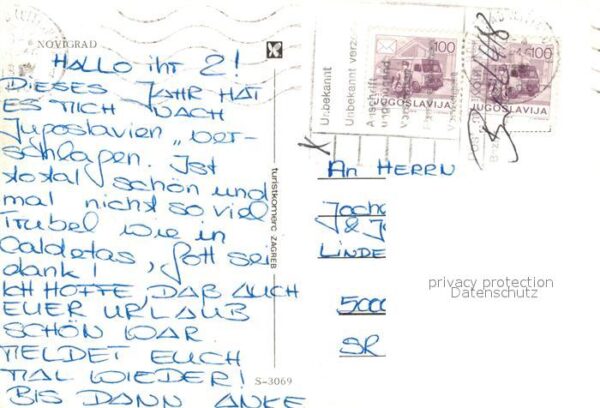 NOVIGRAD
HALLO ihr 2!
DIESES JAHR HAT
ES MICH NACH
Jugoslavien „ver-
schlagen. Ist
total schön und
mal nicht so viel
Trubel wie in
Caldetas, Gott sei
dank!
ICH HOFFE, DAß AUCH
EUER URLAUB
SCHÖN WAR.
MELDET EUCH
MAL WIEDER!
BIS DANN ANKE
turistkomerc ZAGREB
S-3069
100
JUGOSLAVIJA
100
JUGOSLAVIJA
Unbekannt
Unbekannt verzogen
Anschrift
X
An HERRN
Joch
& J
LINDE
5000
SR
privacy protection
Datenschutz